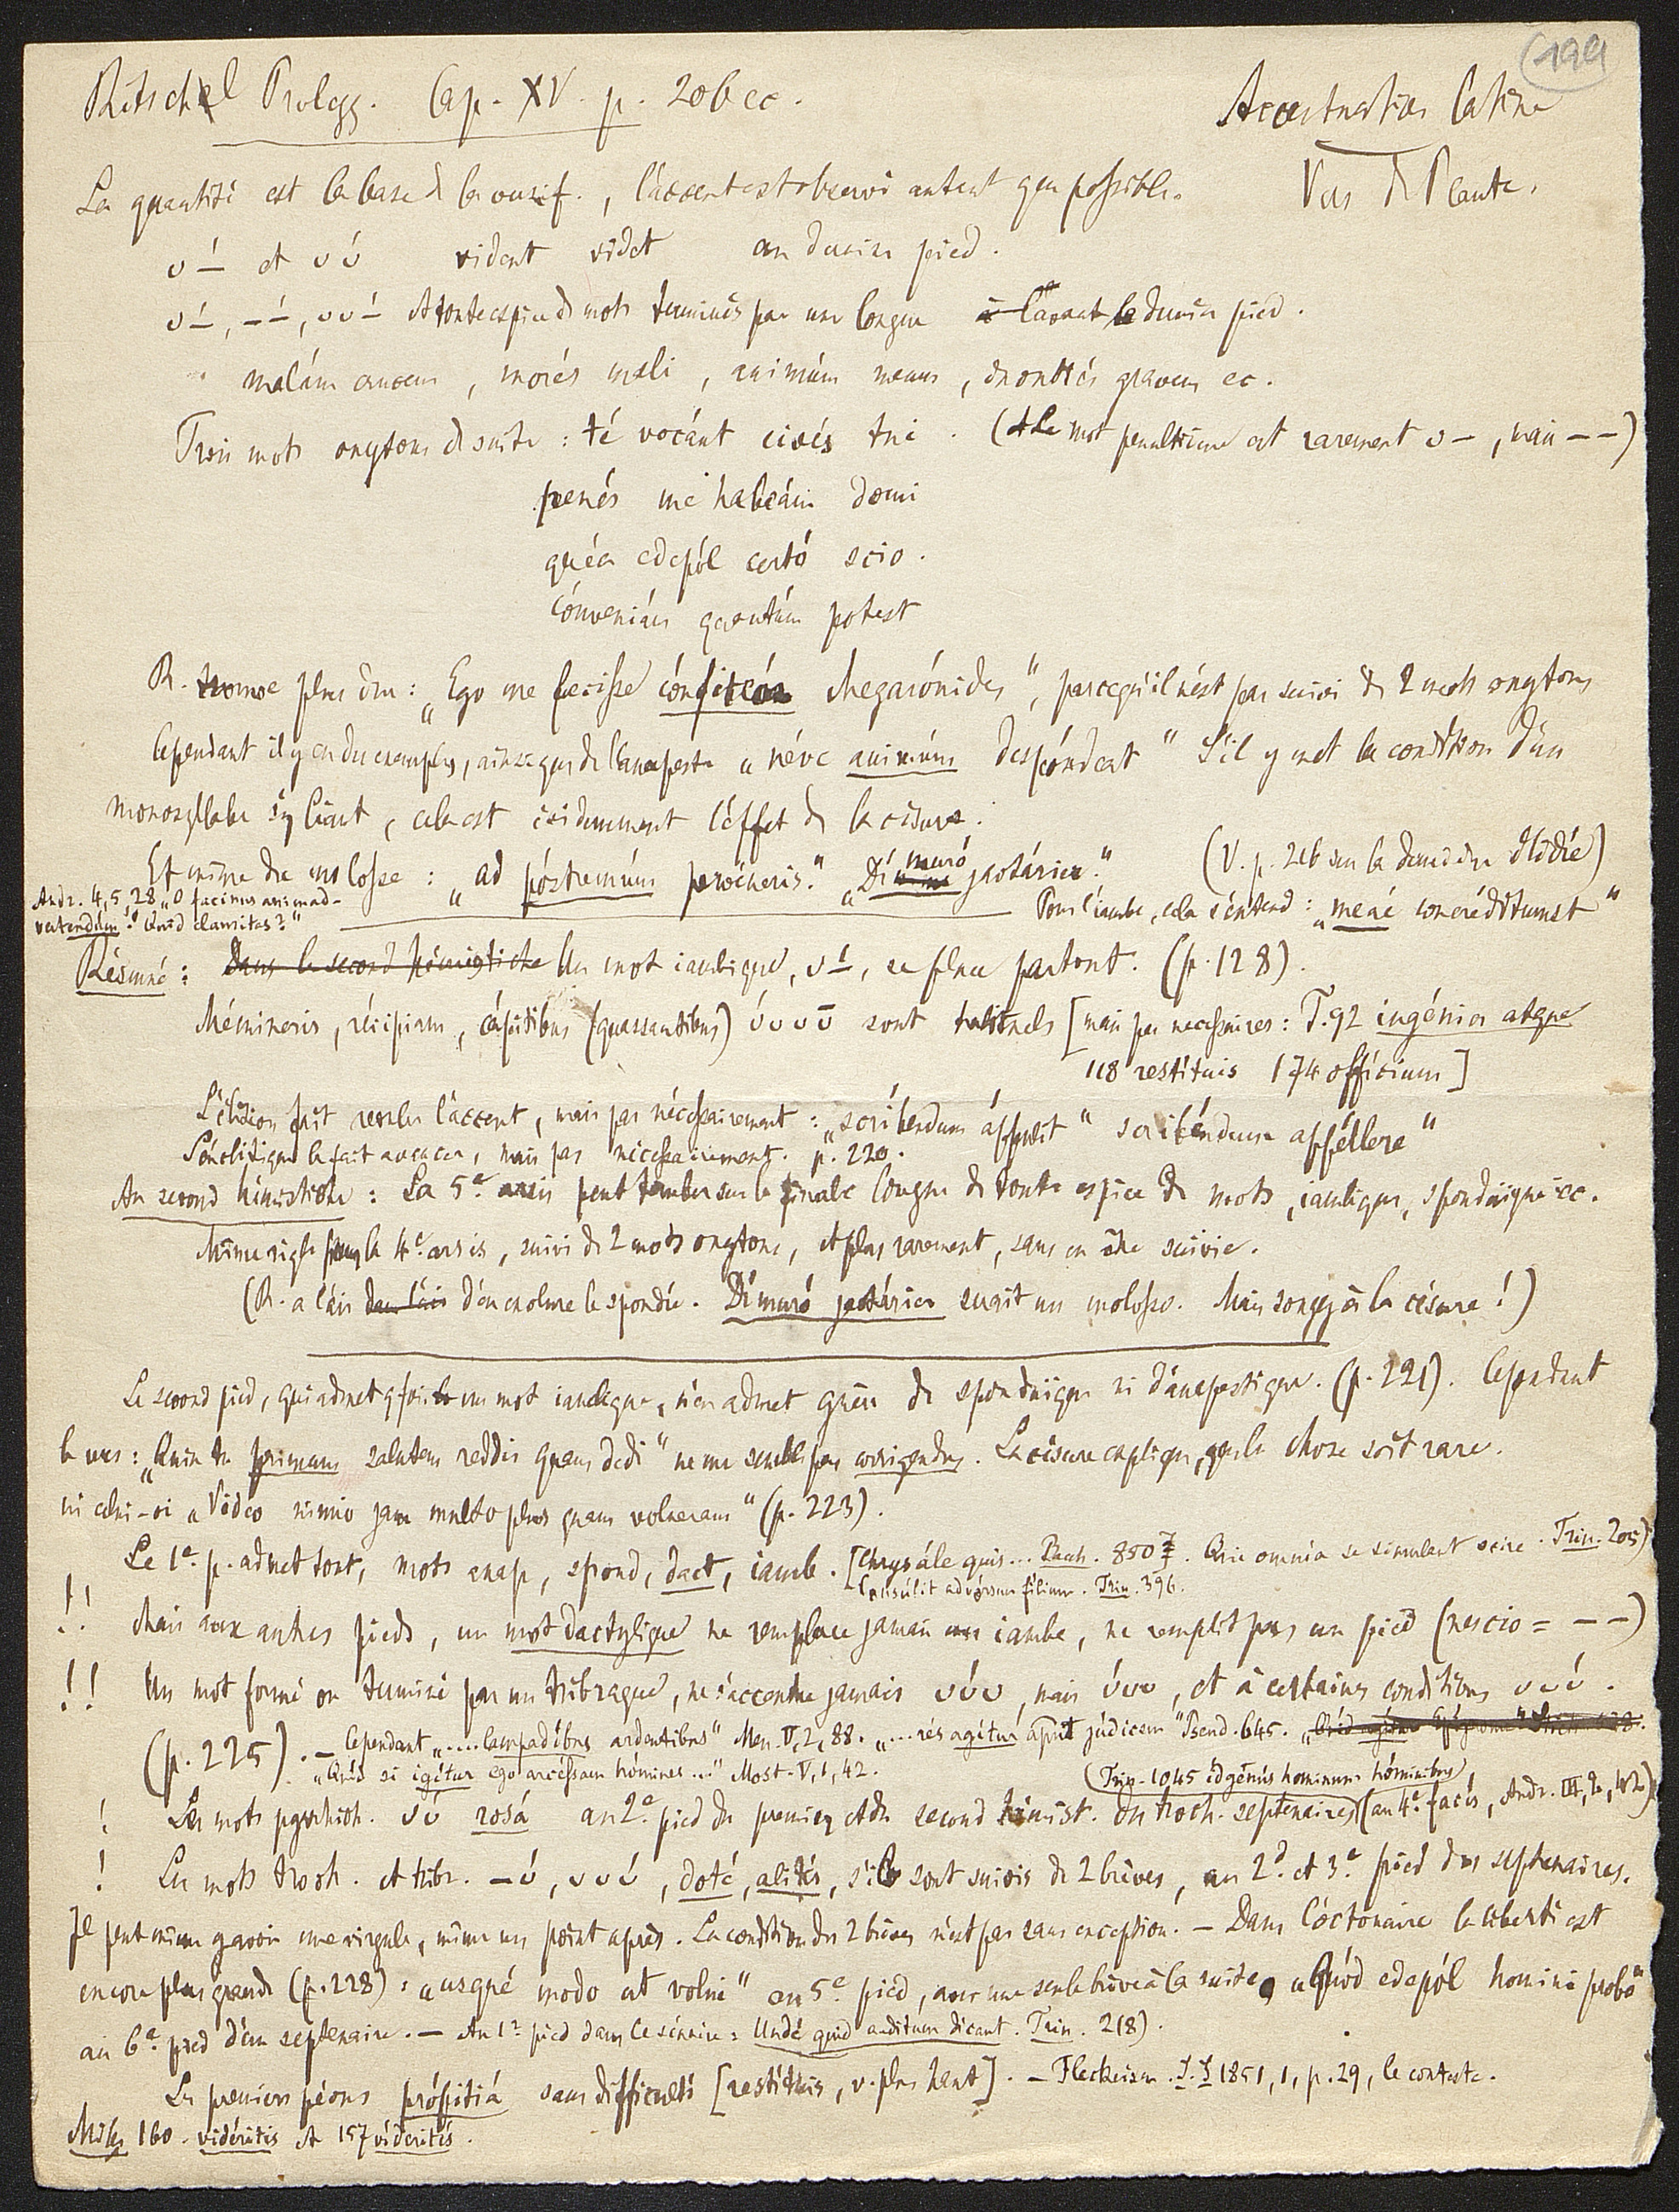 199
Ritschl Prolegg. Cap. XV. p. 206 ec.
Accentuation latine
Vers de Plaute.
La quantité est la base de la versif., l'accent est observé autant que possible.
υ –́ et υ ύ vident videt au dernier pied.
υ –́, – –́, υυ –́ et toute espèce de mots terminés par une longue avant le dernier pied.
malám crucem, morés mali, animúm meum, gravem ec.
Trois mots oxytons de suite : té vocánt civés tui. (Le mot penultième est rarement υ –, mais – –)
penés me habeám domi
quéa edepól certó scio.
cónveniám quantúm potest
R. trouve plus dur : „Ego me fecisse cónfiteór Megarónides", parcequ'il n'est pas suivi de 2 mots oxytons
Cependant il y en a des exemples, ainsi que de l'anapeste „néve animúm despóndeat" S'il y met la condition d'un
monosyllabe s'y liant, cela est évidemment l'effet de la césure.
Et même du molosse : „ad póstremúm perócheris." „Dí muró jactárier." (V. p. 216 sur la d'élidée)
Andr. 4, 5, 28 „O facinus animad-
vertendúm! Quid clamitas?"
Pour l'iambe, cela s'entend : „meaé concréditumst"
Résumé : Dans le second hémistiche Un mot iambique, υ –́, se place partout. (p. 128).
Mémineris, récipiam, cápitibus (quassantibus) ύ υ υ ῡ sont habituels [mais pas necessaires : T. 92 ingénia atque
118 restítuis 174 offícium]
L'élision fait reculer l'accent, mais pas nécessairement : „scríbendum áppulit" scribéndum appéllere"
L'enclitique le fait avancer, mais pas nécessairement. p. 220.
Au second hémistiche : La 5e arsis peut tomber sur la finale longue de toute espèce de mots, iambique, spondaique ec.
Même règle pour la 4e arsis, suivi de 2 mots oxytons, et plus rarement, sans en être suivie.
(R. a l'air d'en exclure le spondée. Dí muró jactárier serait un molosse. Mais songez à la césure!)
Le second pied, qui admet qfois un mot iambique, n'en admet guère de spondaique ni d'anapestique. (p. 221). Cependant
le vers : „Quin tu primum salutem reddis quam dedi" ne me semble pas corrigendus. La césure explique, que la chose soit rare.
ni celui-ci „Video nimio jam multo plus quam volueram" (p. 223).
Le 1e p. admet tout, mots anap, spond, dact, iamb. [Chrysále quis... Bach. 850. Qui omnía se simulant scire. Trin. 205]
Consúlit advórsum fílium. Trin. 396.
!! Mais aux autres pieds, un mot dactylique ne remplace jamais un iambe, ne remplit pas un pied (nescio = – –)
!! Un mot formé ou terminé par un tribraque, ne s'accentue jamais υ ύ υ, mais ύ υ υ, et à certaines conditions υ υ ύ.
(p. 225). – Cependant „....lampadíbus ardentibus" Men. V, 2, 88. „...rés agítur apud júdicem" Pseud. 645.
„Quid si igítur ego arcéssam hómines..." Most. V, 1, 42.
(Trin. 1045 idgenús hominum hóminibus)
! Les mots pyrrhich. υ ύ rosá au 2e pied du premier et du second hémist. du troch. septenaires (au 4e facís, Andr. III, 2, 42)
! Les mots troch. et tribr. – ύ, υ υ ύ, doté, alitís, s'ils sont suivis de 2 brèves, au 2d et 3e pied des septenaires.
Il peut même y avoir une virgule, même un point après. La condition des 2 brèves n'est pas sans exception. – Dans l'octonaire la liberté est
encore plus grande (p. 228) : „usqué modo ut volui" au 5e pied, avec une seule brève à la suite, „Quód edepól homini probó"
au 6e pied d'un septenaire. – Au 1r pied dans le sénaire : Undé quid auditum dicant. Trin. 218).
Les premiers péons própitiá sans difficulté [restítuis, v. plus haut]. – Fleckeisen. J. J 1851, 1, p. 29, le conteste.
Miles 160. vidéritis et 157 vídéritis.